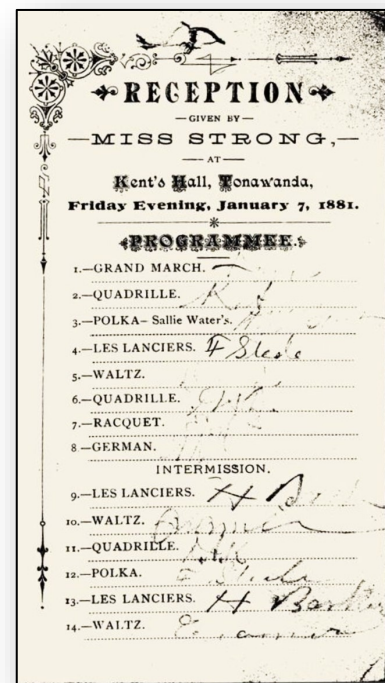 RECEPTION
—GIVEN BY—
—MISS STRONG,—
—AT—
Kent's Hall, Tonawanda,
Friday Evening, January 7, 1881.
PROGRAMMEE.
1.—GRAND MARCH.
2.—QUADRILLE.
3.—POLKA– Sallie Water's.
4.—LES LANCIERS. F Steele
5.—WALTZ.
6.—QUADRILLE.
7.—RACQUET.
8—GERMAN.
INTERMISSION.
9.—LES LANCIERS. H
10.—WALTZ.
11.—QUADRILLE.
12.—POLKA.
13.—LES LANCIERS. H
14.—WALTZ. E